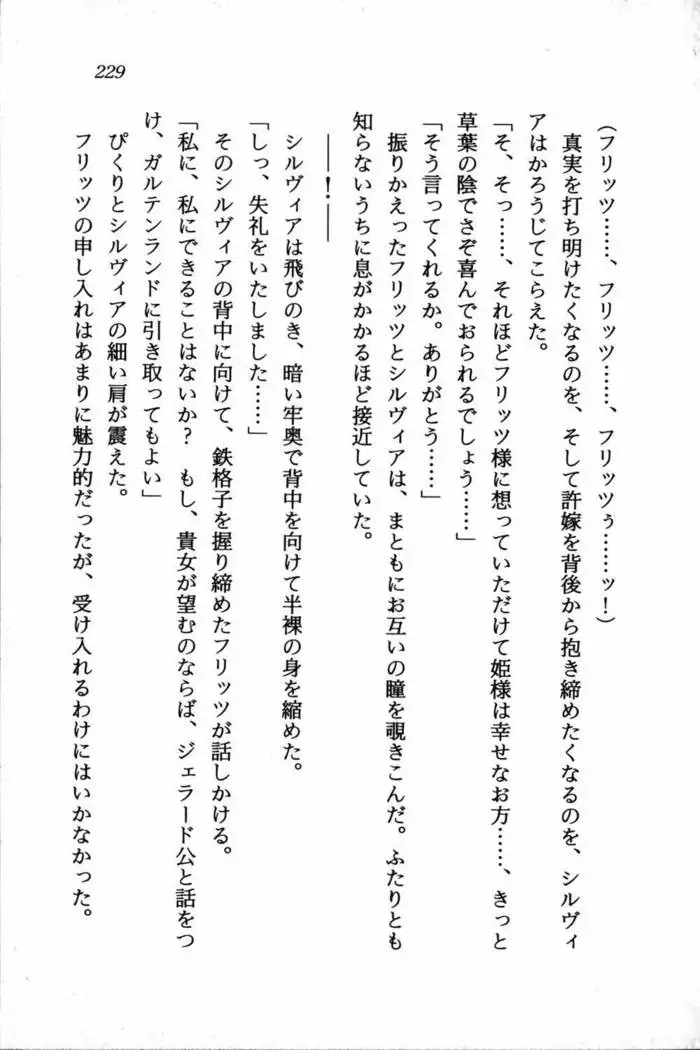 229
(フリッツ……、フリッツ……、フリッツぅ……ッ!)
真実を打ち明けたくなるのを、そして許嫁を背後から抱き締めたくなるのを、シルヴィ
アはかろうじてこらえた。
「そ、そっ……、それほどフリッツ様に想っていただけて姫様は幸せなお方……、きっと
草葉の陰でさぞ喜んでおられるでしょう……」
「そう言ってくれるか。ありがとう……」
振りかえったフリッツとシルヴィアは、まともにお互いの瞳を覗きこんだ。ふたりとも
知らないうちに息がかかるほど接近していた。
――!――
シルヴィアは飛びのき、暗い牢奥で背中を向けて半裸の身を縮めた。
「しっ、失礼をいたしました……」
そのシルヴィアの背中に向けて、鉄格子を握り締めたフリッツが話しかける。
「私に、私にできることはないか? もし、貴女が望むのならば、ジェラード公と話をつ
け、ガルテンランドに引き取ってもよい」
ぴくりとシルヴィアの細い肩が震えた。
フリッツの申し入れはあまりに魅力的だったが、受け入れるわけにはいかなかった。